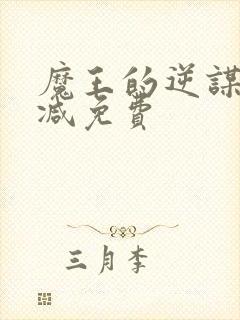 魔王的逆謀
減免費
三月李